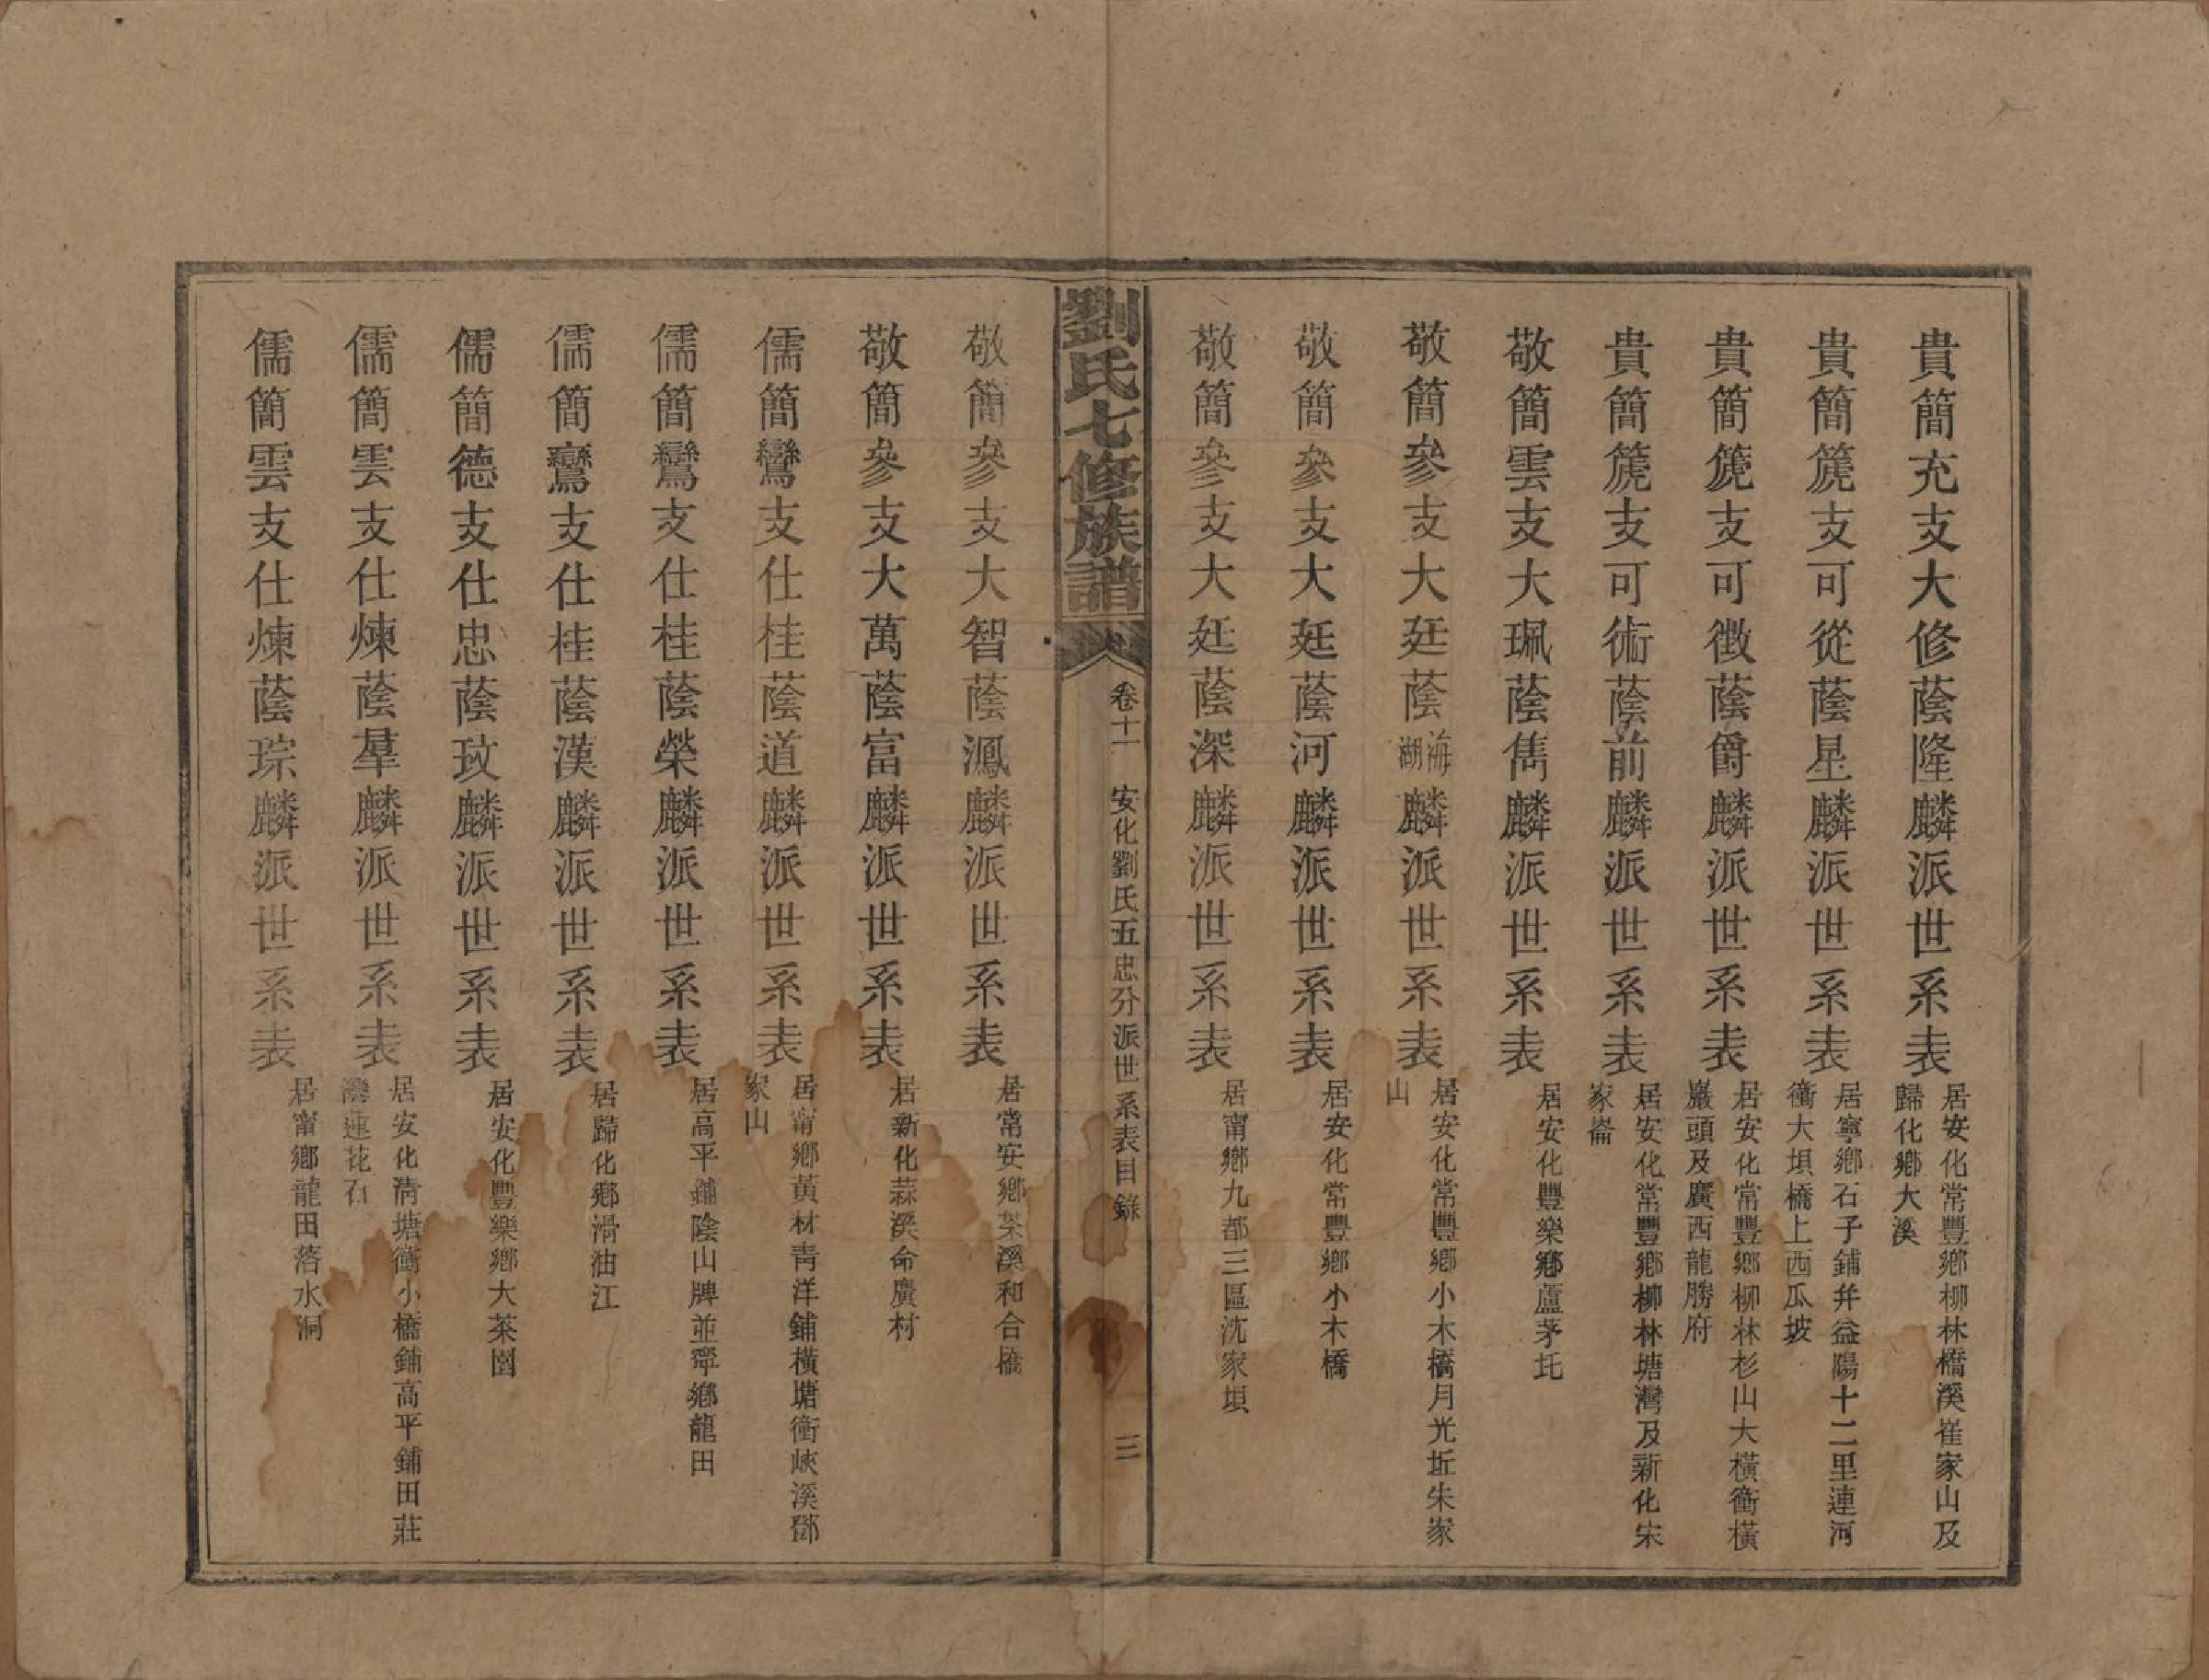 貴簡充支大修蔭隆麟派世系表
居安化常豐鄉柳林橋溪崔家山及
歸化鄉大溪
貴簡篪支可從蔭星麟派世系表
居寧鄉石子鋪并益陽十二里連河
衝大垻橋上西瓜坡
貴簡篪支可徴蔭爵麟派世系表
居安化常豐鄉柳林杉山大橫衝橫
巖頭及廣西龍勝府
貴簡篪支可術蔭前麟派世系表
居安化常豐鄉柳林塘灣及新化宋
家崙
敬簡雲支大珮蔭儁麟派世系表
居安化豐樂鄉蘆茅圫
敬簡參支大廷蔭海湖麟派世系表
居安化常豐鄉小木橋月光坵朱家
山
敬簡參支大廷蔭河麟派世系表
居安化常豐鄉小木橋
敬簡參支大廷蔭深麟派世系表
居甯鄉九都三區沈家垻
劉氏七修族譜
卷十一
安化劉氏五忠分派世系表目錄
三
敬簡參支大智蔭鳳麟派世系表
居常安鄉茶溪和合橋
敬簡參支大萬蔭富麟派世系表
居新化蒜溪命廣村
儒簡鸞支仕桂蔭道麟派世系表
居甯鄉黃材青洋鋪橫塘衝峽溪鄧
家山
儒簡鸞支仕桂蔭榮麟派世系表
居高平鋪陰山牌並寧鄉龍田
儒簡鸞支仕桂蔭漢麟派世系表
居歸化鄉滑油江
儒簡德支仕忠蔭玟麟派世系表
居安化豐樂鄉大茶園
儒簡雲支仕煉蔭羣麟派世系表
居安化清塘衝小橋鋪高平鋪田莊
灣蓮花石
儒簡雲支仕煉蔭琮麟派世系表
居甯鄉龍田落水洞